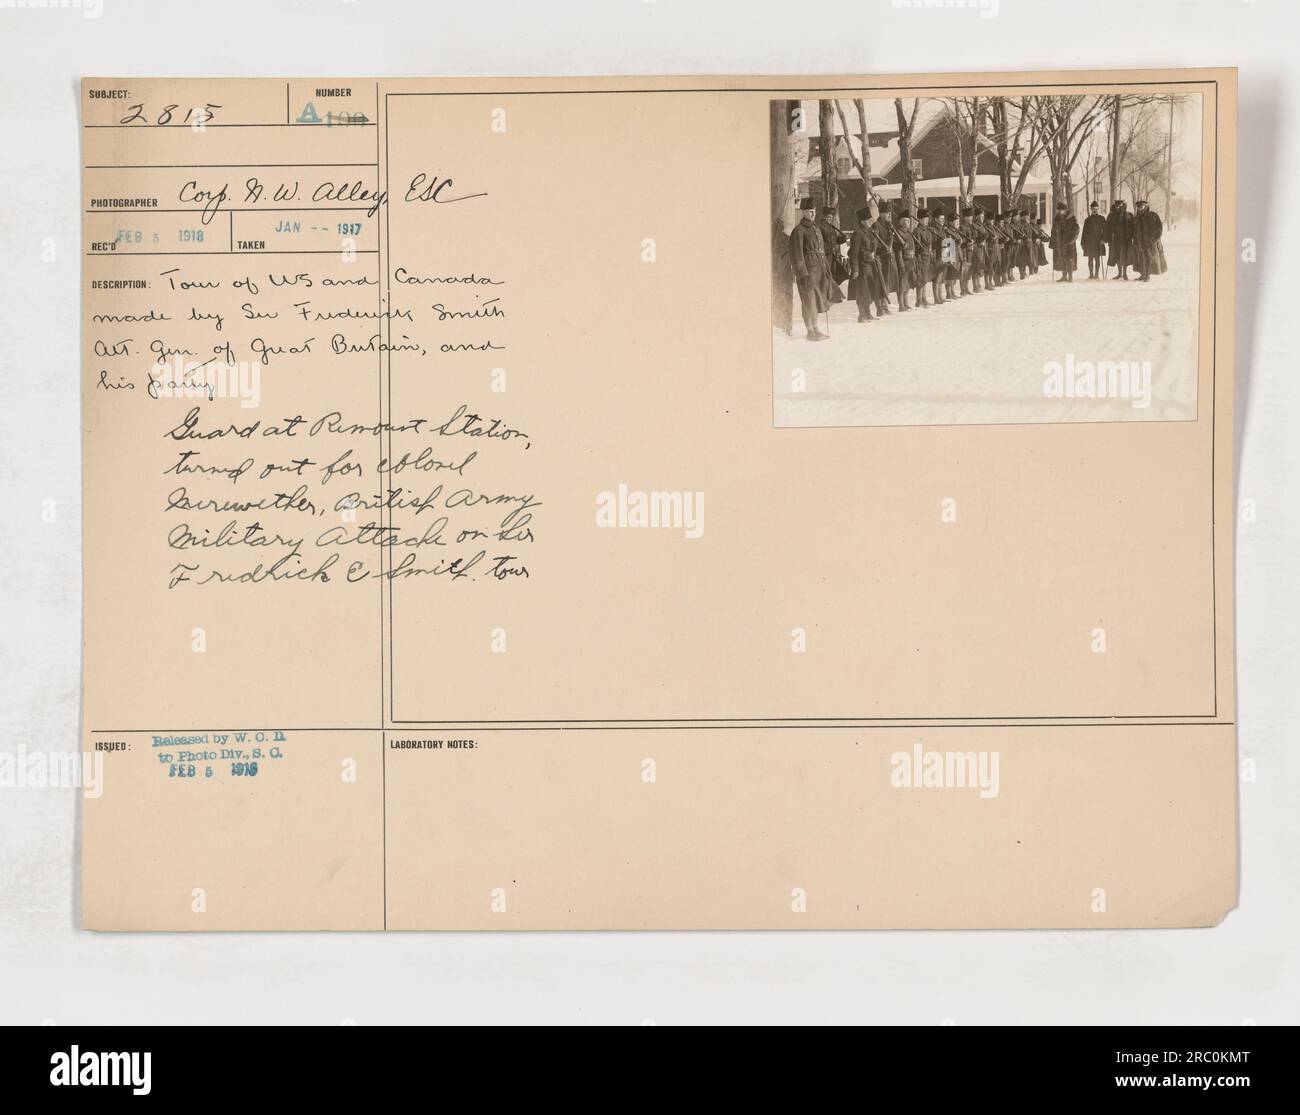 SUBJECT: 2815
NUMBER
A 100
PHOTOGRAPHER Corp. H. W. Alley, ESC
REC'D FEB 5 1918
TAKEN JAN -- 1917
DESCRIPTION: Tour of US and Canada
made by Sir Frederick Smith
Att. Gen. of Great Britain, and
his party
Guard at Remount Station,
turned out for Colonel
Merewether, British Army
Military Attache on Sir
Fredrick E Smith. tour
ISSUED: Released by W. C. D.
to Photo Div., S. C.
FEB 5 1918
LABORATORY NOTES:
alamy
alamy
alamy
Image ID: 2RC0KMT
www.alamy.com